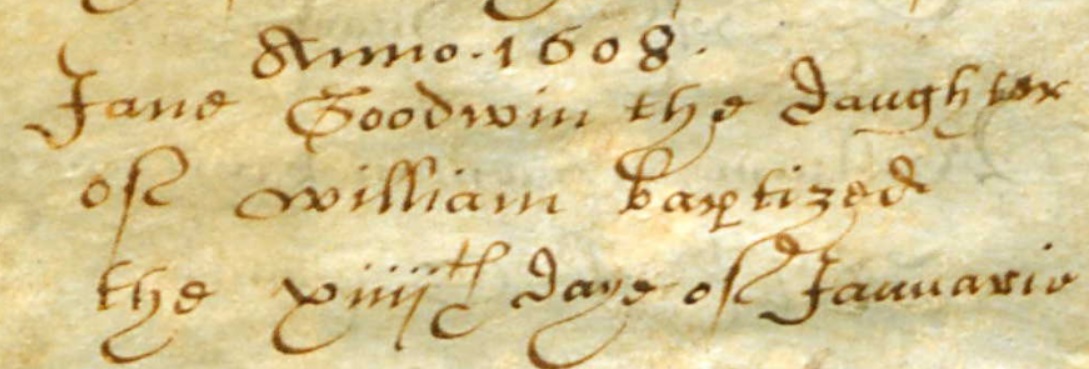 Anno. 1608.
Jane Goodwin the daughter
of william baptized
the xiiijth daye of Januarie